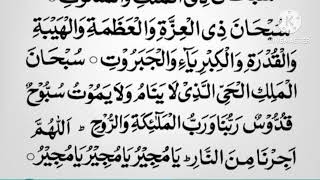 سُبْحَانَ ذِی الْعِزَّةِ وَالْعَظَمَةِ وَالْهَيْبَةِ
وَالْقُدْرَةِ وَالْكِبْرِيَآءِ وَالْجَبَرُوْتِ ؕ سُبْحَانَ
الْمَلِكِ الْحَیِّ الَّذِیْ لَا يَنَامُ وَلَا يَمُوْتُ سُبُّوْحٌ
قُدُّوْسٌ رَبُّنَا وَرَبُّ الْمَلٰٓئِكَةِ وَالرُّوْحِ ؕ اَللّٰهُمَّ
اَجِرْنَا مِنَ النَّارِ ؕ يَا مُجِيْرُ يَا مُجِيْرُ يَا مُجِيْرُ ○